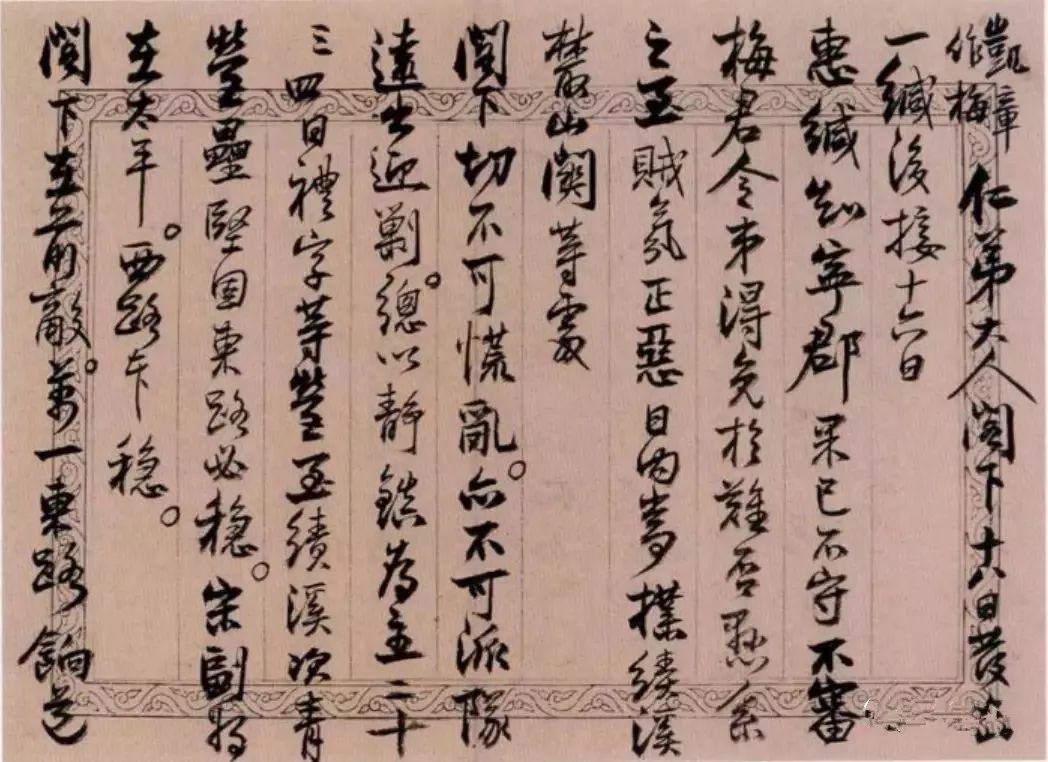 凱章
作梅
仁弟大人閣下十八日發出
一緘後接十六日
惠緘知寧郡果已不守不審
梅君令弟得免於難否懸系
之至賊氛正惡日內當撲績溪
叢山關等處
閣下切不可慌亂。亦不可派隊
遠出迎剿。總以靜鎮為主二十
三四日禮字等營至績溪次青
營壘堅固東路必穩。宋副將
在太平。西路亦穩。
閣下在前敵。萬一東路餉道